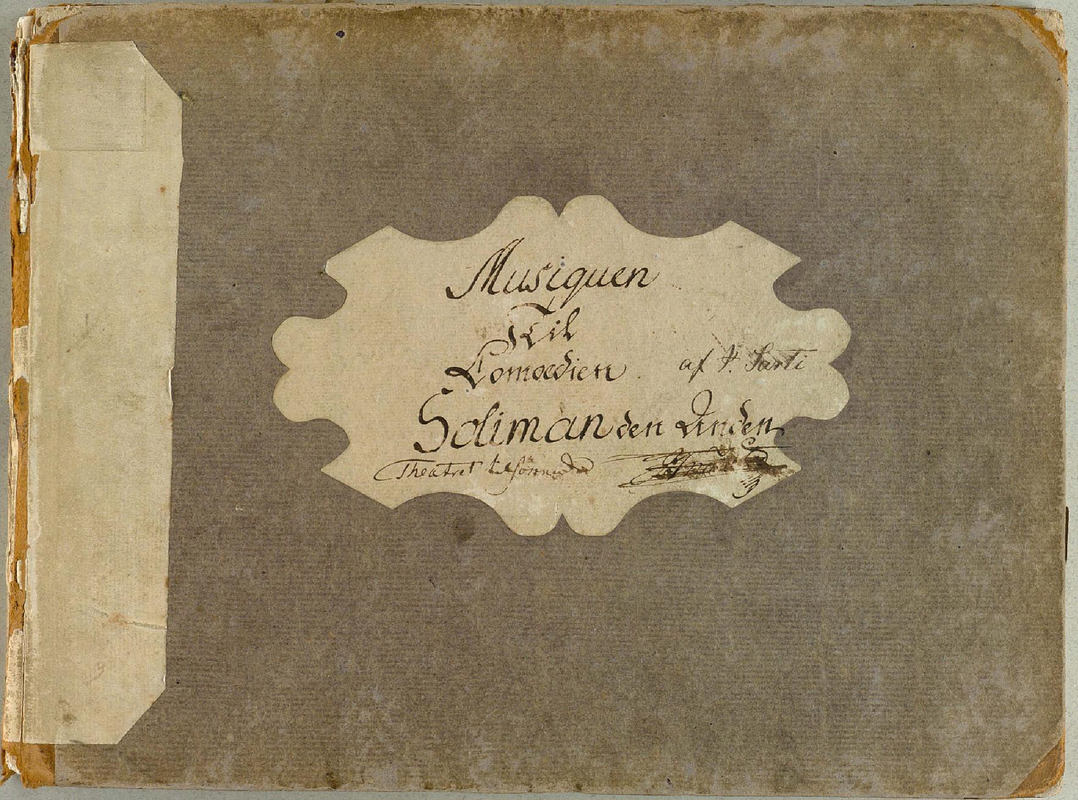 Musiquen
Til
Comoedien af J. Sarti
Soliman den Anden
Theatret